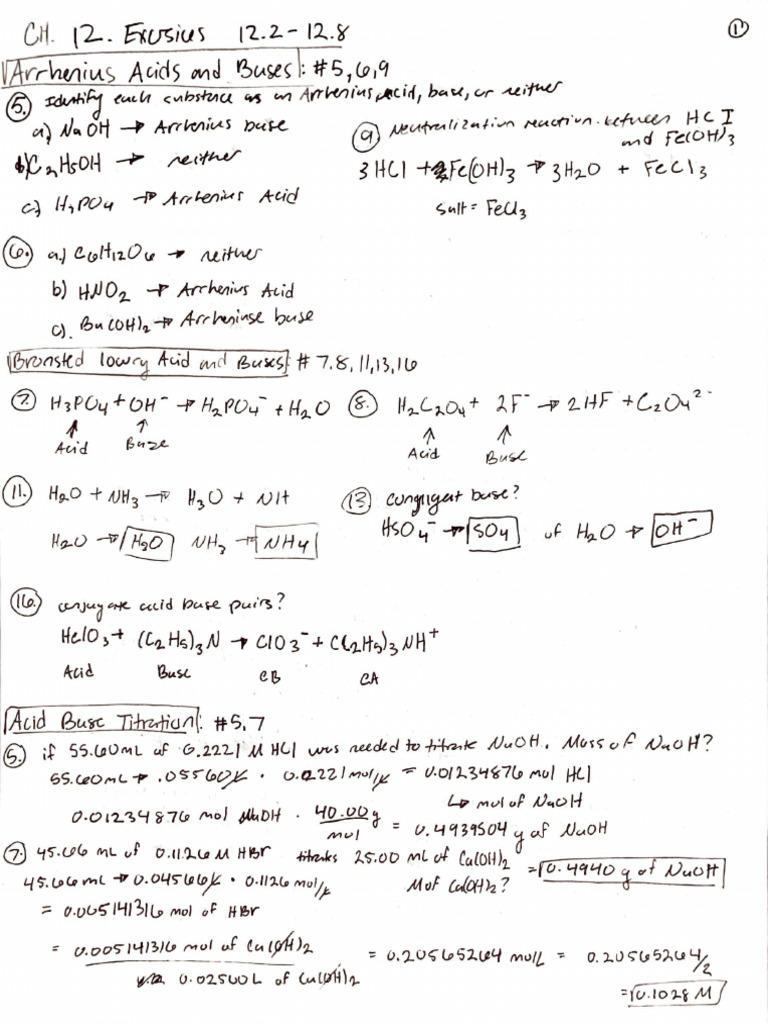 CH. 12. Exusius 12.2-12.8
1
Arrhenius Acids and Buses: #5,6,9
5. Identify each substance as an Arrhenius acid, base, or neither
a) NaOH → Arrhenius base
b) C2H5OH → neither
c) H3PO4 → Arrhenius Acid
9 Neutralization reaction between HCl
and Fe(OH)3
3HCl + Fe(OH)3 → 3H2O + FeCl3
Salt = FeCl3
6. a.) C6H12O6 → neither
b) HNO2 → Arrhenius Acid
c). Ba(OH)2 → Arrheniuse base
Bronsted lowry Acid and Buses: # 7.8, 11, 13, 16
7. H3PO4 + OH⁻ → H2PO4⁻ + H2O
↑ ↑
Acid Base
8. H2C2O4 + 2F⁻ → 2HF + C2O4²⁻
↑ ↑
Acid Base
11. H2O + NH3 → H3O + NH
H2O → H3O NH3 → NH4
13 conjigent base?
HSO4⁻ → SO4 of H2O → OH⁻
16. conjugate acid base pairs?
HClO3 + (C2H5)3N → ClO3⁻ + (C2H5)3NH⁺
Acid Base CB CA
Acid Base Titration: #5,7
5. if 55.60mL of 0.2221 M HCl was needed to titrate NaOH. Mass of NaOH?
55.60mL → .05560L · 0.2221mol/L = 0.01234876 mol HCl
↳ mol of NaOH
0.01234876 mol NaOH · 40.00g/mol = 0.4939504 g of NaOH
= 0.4940 g of NaOH
7. 45.66 mL of 0.1126 M HBr titrates 25.00 mL of Ca(OH)2
M of Ca(OH)2?
45.66mL → 0.04566L · 0.1126 mol/L
= 0.005141316 mol of HBr
= 0.005141316 mol of Ca(OH)2 / 0.02500L of Ca(OH)2 = 0.20565264 mol/L = 0.20565264/2
= 0.1028 M